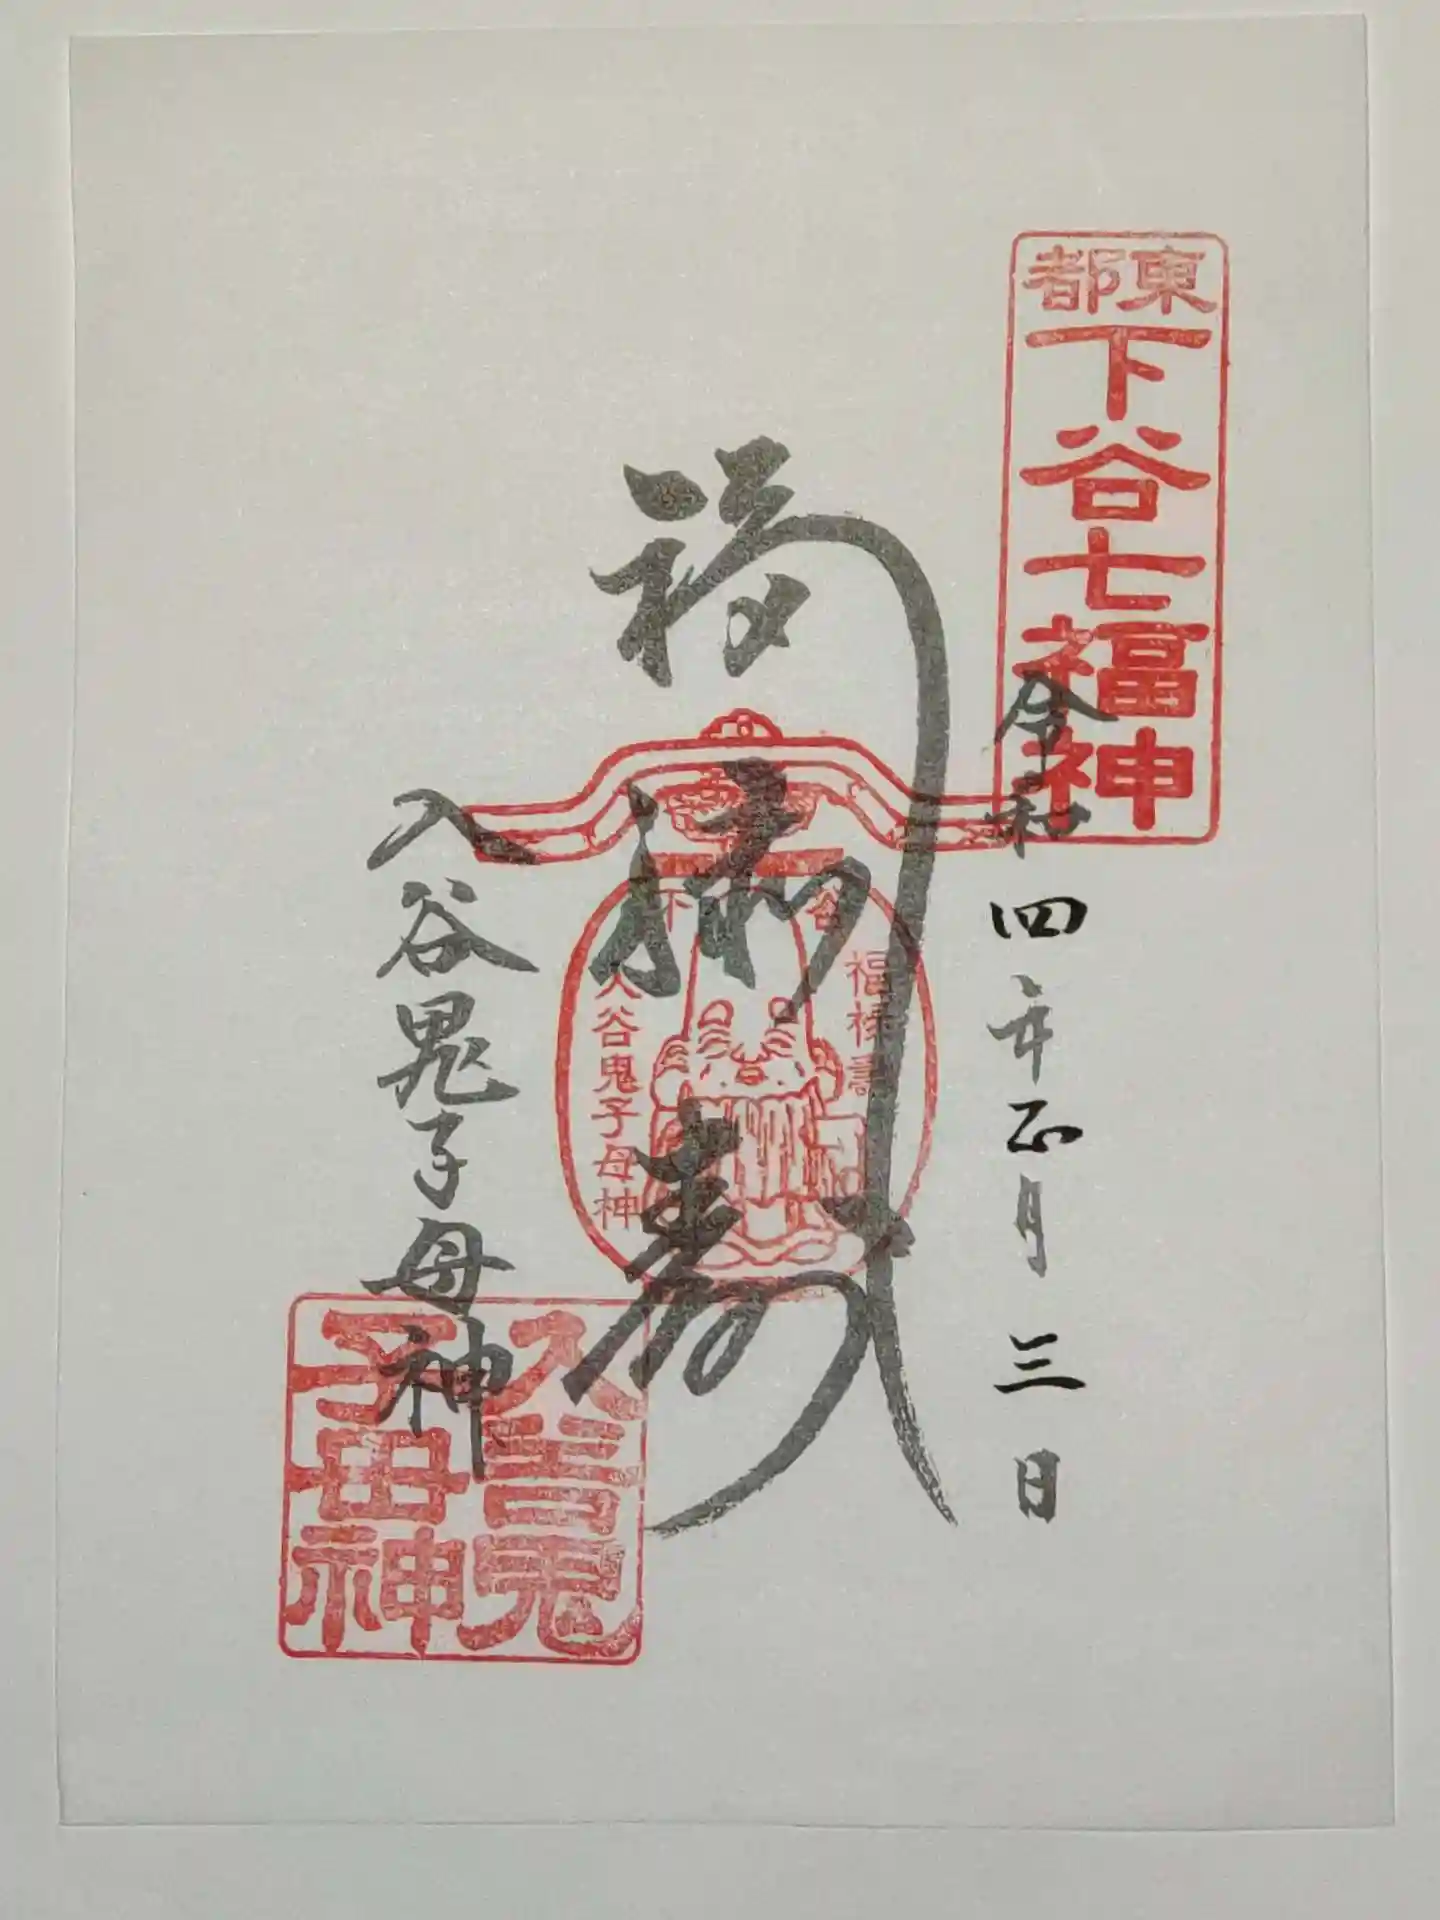 東都
下谷七福神
令和四年正月三日
福禄寿
下谷
福禄壽
入谷鬼子母神
入谷鬼子母神
入谷鬼
子母神